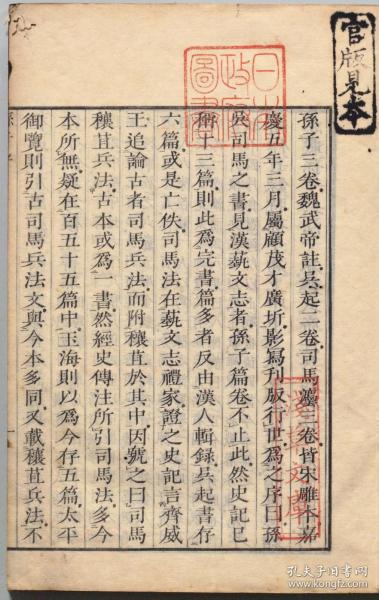 官版見本
孫子三卷魏武帝註吳起二卷司馬灋三卷皆宋雕本嘉
慶五年三月屬顧茂才廣圻影寫刊版行世爲之序曰孫
吳司馬之書見漢藝文志者孫子篇卷不止此然史記巳
稱十三篇則此爲完書篇多者反由漢人輯錄吳起書存
六篇或是亡佚司馬法在藝文志禮家證之史記言齊威
王追論古者司馬兵法而附穰苴於其中因號之曰司馬
穰苴兵法古本或爲一書然經史傳注所引司馬法多今
本所無疑在百五十五篇中玉海則以爲今存五篇太平
御覽則引古司馬兵法文與今本多同又載穰苴兵法不
孔夫子旧书网